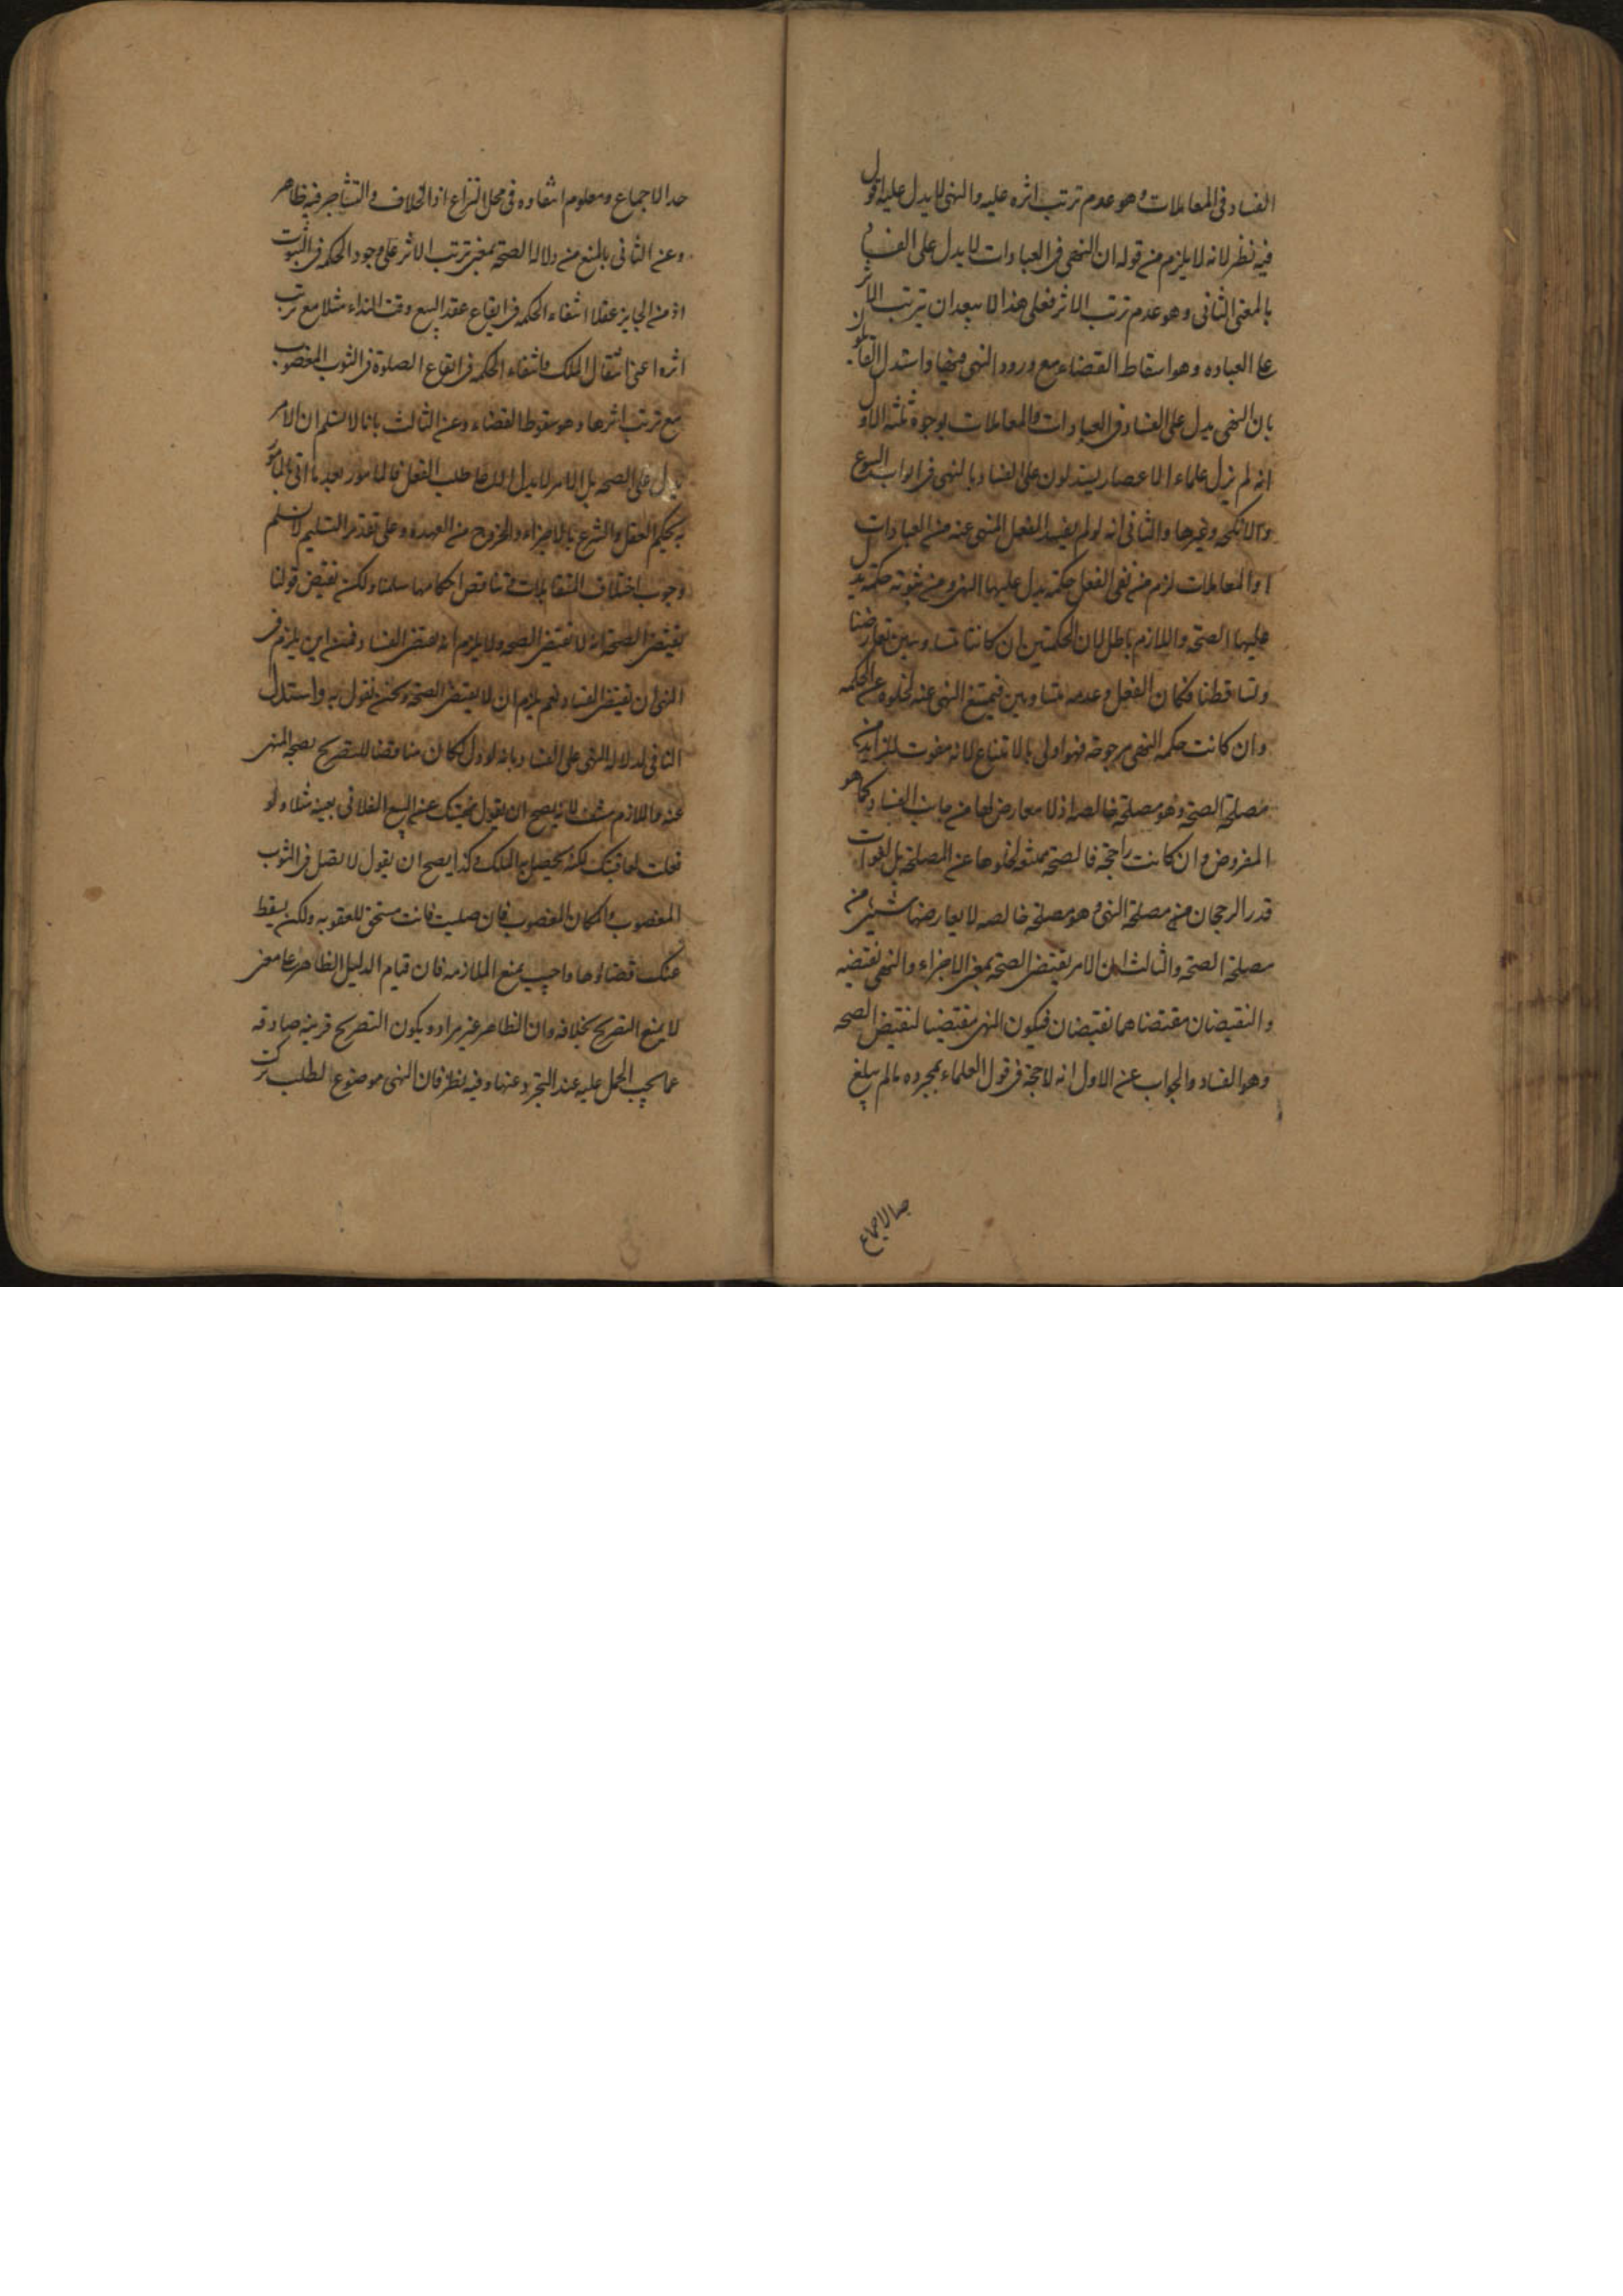 الفساد فى المعاملات وهو عدم ترتب اثره عليه والنهى لا يدل عليه اقول
فيه نظر لانه لا يلزم من قوله ان النهى فى العبادات لا يدل على الفساد
بالمعنى الثانى وهو عدم ترتب الاثر فعلى هذا لا يبعد ان يترتب الاثر
على العباده وهو اسقاط القضاء مع ورود النهى فيها واستدل القائلون
بان النهى يدل على الفساد فى العبادات والمعاملات بوجوه ثلثه الاول
انه لم يزل علماء الاعصار يستدلون على الفساد بالنهى فى ابواب البيوع
والانكحه وغيرها والثانى انه لو لم يفسد الفعل المنهى عنه من العبادات
او المعاملات لزم من نفى الفعل حكمة يدل عليها النهى ومن ثبوته حكمة يدل
عليها الصحة واللازم باطل لان الحكمتين ان كانتا متساويتين تعارضتا
وتساقطتا فكان الفعل وعدمه متساويين فيمتنع النهى عنه لخلوه عن الحكمه
وان كانت حكمه النهى مرجوحه فهو اولى بالامتناع لانه مفوت للزايد من
مصلحة الصحة وهو مصلحة خالصه اذ لا معارض لها من جانب الفساد كما هو
المفروض وان كانت راجحة فالصحة ممتنعه لخلوها عن المصلحة بل لفوات
قدر الرجحان من مصلحة النهى وهو مصلحة خالصه لا يعارضها شيئ من
مصلحة الصحة والثالث ان الامر يقتضى الصحة بمعنى الاجزاء والنهى نقيضه
والنقيضان مقتضاهما نقيضان فيكون النهى مقتضيا لنقيض الصحه
وهو الفساد والجواب عن الاول انه لا حجة فى قول العلماء بمجرده ما لم يبلغ
حد الاجماع
حد الاجماع ومعلوم انتفاوه فى محل النزاع اذ الخلاف والتشاجر فيه ظاهر
وعن الثانى بالمنع من دلاله الصحة بمعنى ترتب الاثر على وجود الحكمه فى الثبوت
اذ من الجايز عقلا انتفاء الحكمه فى ايقاع عقد البيع وقت النداء مثلا مع ترتب
اثره اعنى انتقال الملك وانتفاء الحكمه فى ايقاع الصلوة فى الثوب المغصوب
مع ترتب اثرها وهو سقوط القضاء وعن الثالث بانا لا نسلم ان الامر
يدل على الصحه بل الامر لا يدل الا على طلب الفعل فالمامور بعد ما اتى بالمامور
به يحكم العقل والشرع بالاجزاء والخروج من العهده وعلى تقدير التسليم لا نسلم
وجوب اختلاف المتقابلات وتناقض احكامها سلمنا ولكن نقيض قولنا
يقتضى الصحة انه لا يقتضى الصحه ولا يلزم انه يقتضى الفساد فمن اين يلزم فى
النهى ان يقتضى الفساد نعم يلزم ان لا يقتضى الصحة ونحن نقول به واستدل
النافى لدلاله النهى على الفساد بانه لو دل لكان مناقضا للتصريح بصحه المنهى
عنه واللازم منتف لانه يصح ان يقول نهيتك عن البيع الفلانى بعينه مثلا ولو
فعلت لعاقبتك لكنه يحصل به الملك وكذا يصح ان يقول لا تصل فى الثوب
المغصوب والمكان المغصوب فان صليت فانت مستحق للعقوبه ولكن يسقط
عنك قضاوها واجيب بمنع الملازمه فان قيام الدليل الظاهر على معنى
لا يمنع التصريح بخلافه وان الظاهر غير مراد ويكون التصريح قرينه صارفه
عما يجب الحمل عليه عند التجرد عنها وفيه نظر فان النهى موضوع لطلب ترك